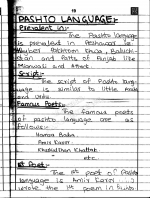 PASHTO LANGUAGE:-
Prevalent in:-
The Pashto language
is prevalent in Peshawar
Khyber Pakhtoon khwa, Baluch-
istan and parts of Punjab like
Mianwali and Attock
Script:-
The script of Pashto lang-
uage is similar to
and
Famous Poets:-
The famous poets
of pashto language are as
follows:-
Hamza Baba,
Amir Karor
Khushal Khan Khattak
etc.
1st Poet:-
The 1st poet of Pashto
language is Amir Karor
wrote the 1st poem in Pashto